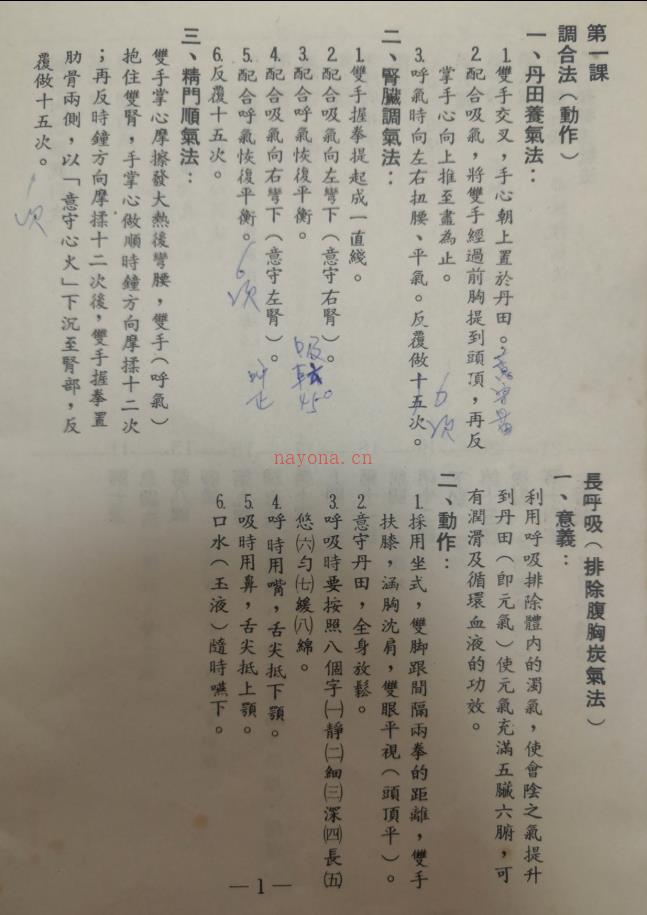 第一課
調合法（動作）
一、丹田養氣法：
1.雙手交叉，手心朝上置於丹田。
2.配合吸氣，將雙手經過前胸提到頭頂，再反
掌手心向上推至盡為止。
3.呼氣時向左右扭腰、平氣。反覆做十五次。
6次
二、腎臟調氣法：
1.雙手握拳提起成一直綫。
2.配合吸氣向左彎下（意守右腎）。
3.配合呼氣恢復平衡。
4.配合吸氣向右彎下（意守左腎）。
5.配合呼氣恢復平衡。
6.反覆十五次。
吸
45°
呼
6次
三、精門順氣法：
雙手掌心摩擦發大熱後彎腰，雙手（呼氣）
抱住雙腎，手掌心做順時鐘方向摩揉十二次
；再反時鐘方向摩揉十二次後，雙手握拳置
肋骨兩側，以「意守心火」下沉至腎部，反
覆做十五次。
次
長呼吸（排除腹胸炭氣法）
一、意義：
利用呼吸排除體內的濁氣，使會陰之氣提升
到丹田（即元氣）使元氣充滿五臟六腑，可
有潤滑及循環血液的功效。
二、動作：
1.採用坐式，雙脚跟間隔兩拳的距離，雙手
扶膝，涵胸沈肩，雙眼平視（頭頂平）。
2.意守丹田，全身放鬆。
3.呼吸時要按照八個字㈠靜㈡細㈢深㈣長㈤
悠㈥勻㈦緩㈧綿。
4.呼時用嘴，舌尖抵下顎。
5.吸時用鼻，舌尖抵上顎。
6.口水（玉液）隨時嚥下。
—1—
nayona.cn